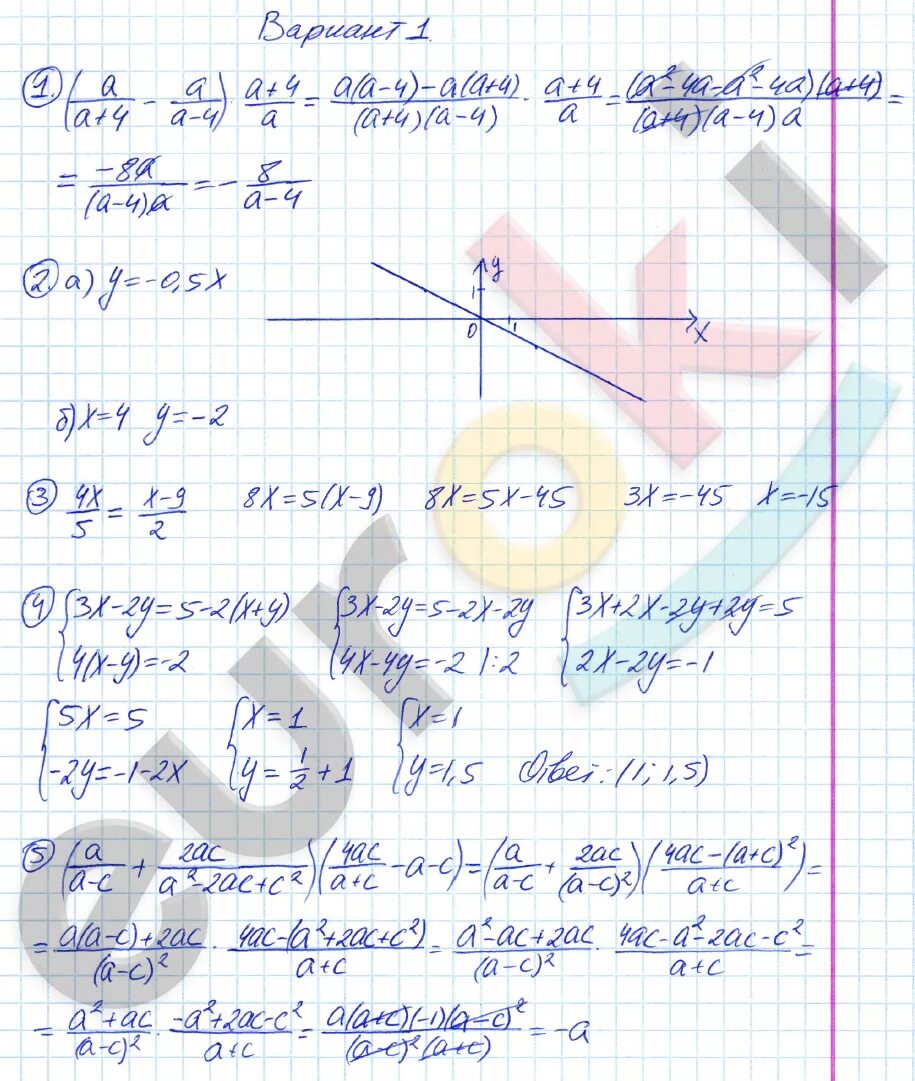 Вариант 1.
1. (a/(a+4) - a/(a-4)) · (a+4)/a = (a(a-4)-a(a+4))/((a+4)(a-4)) · (a+4)/a = ((a²-4a-a²-4a)(a+4))/((a+4)(a-4)a) =
= (-8a)/((a-4)a) = - 8/(a-4)
2. а) y=-0,5x
y
1
0 1 x
б) x=4 y=-2
3 4x/5 = (x-9)/2 8x=5(x-9) 8x=5x-45 3x=-45 x=-15
4 {3x-2y=5-2(x+y) {3x-2y=5-2x-2y {3x+2x-2y+2y=5
4(x-y)=-2 4x-4y=-2 |:2 2x-2y=-1
{5x=5 {x=1 {x=1
-2y=-1-2x y=1/2+1 y=1,5 Ответ: (1; 1,5)
5 (a/(a-c) + 2ac/(a²-2ac+c²)) (4ac/(a+c) -a-c) = (a/(a-c) + 2ac/(a-c)²) ((4ac-(a+c)²)/(a+c)) =
= (a(a-c)+2ac)/(a-c)² · (4ac-(a²+2ac+c²))/(a+c) = (a²-ac+2ac)/(a-c)² · (4ac-a²-2ac-c²)/(a+c) =
= (a²+ac)/(a-c)² · (-a²+2ac-c²)/(a+c) = (a(a+c)(-1)(a-c)²)/((a-c)²(a+c)) = -a
euroki